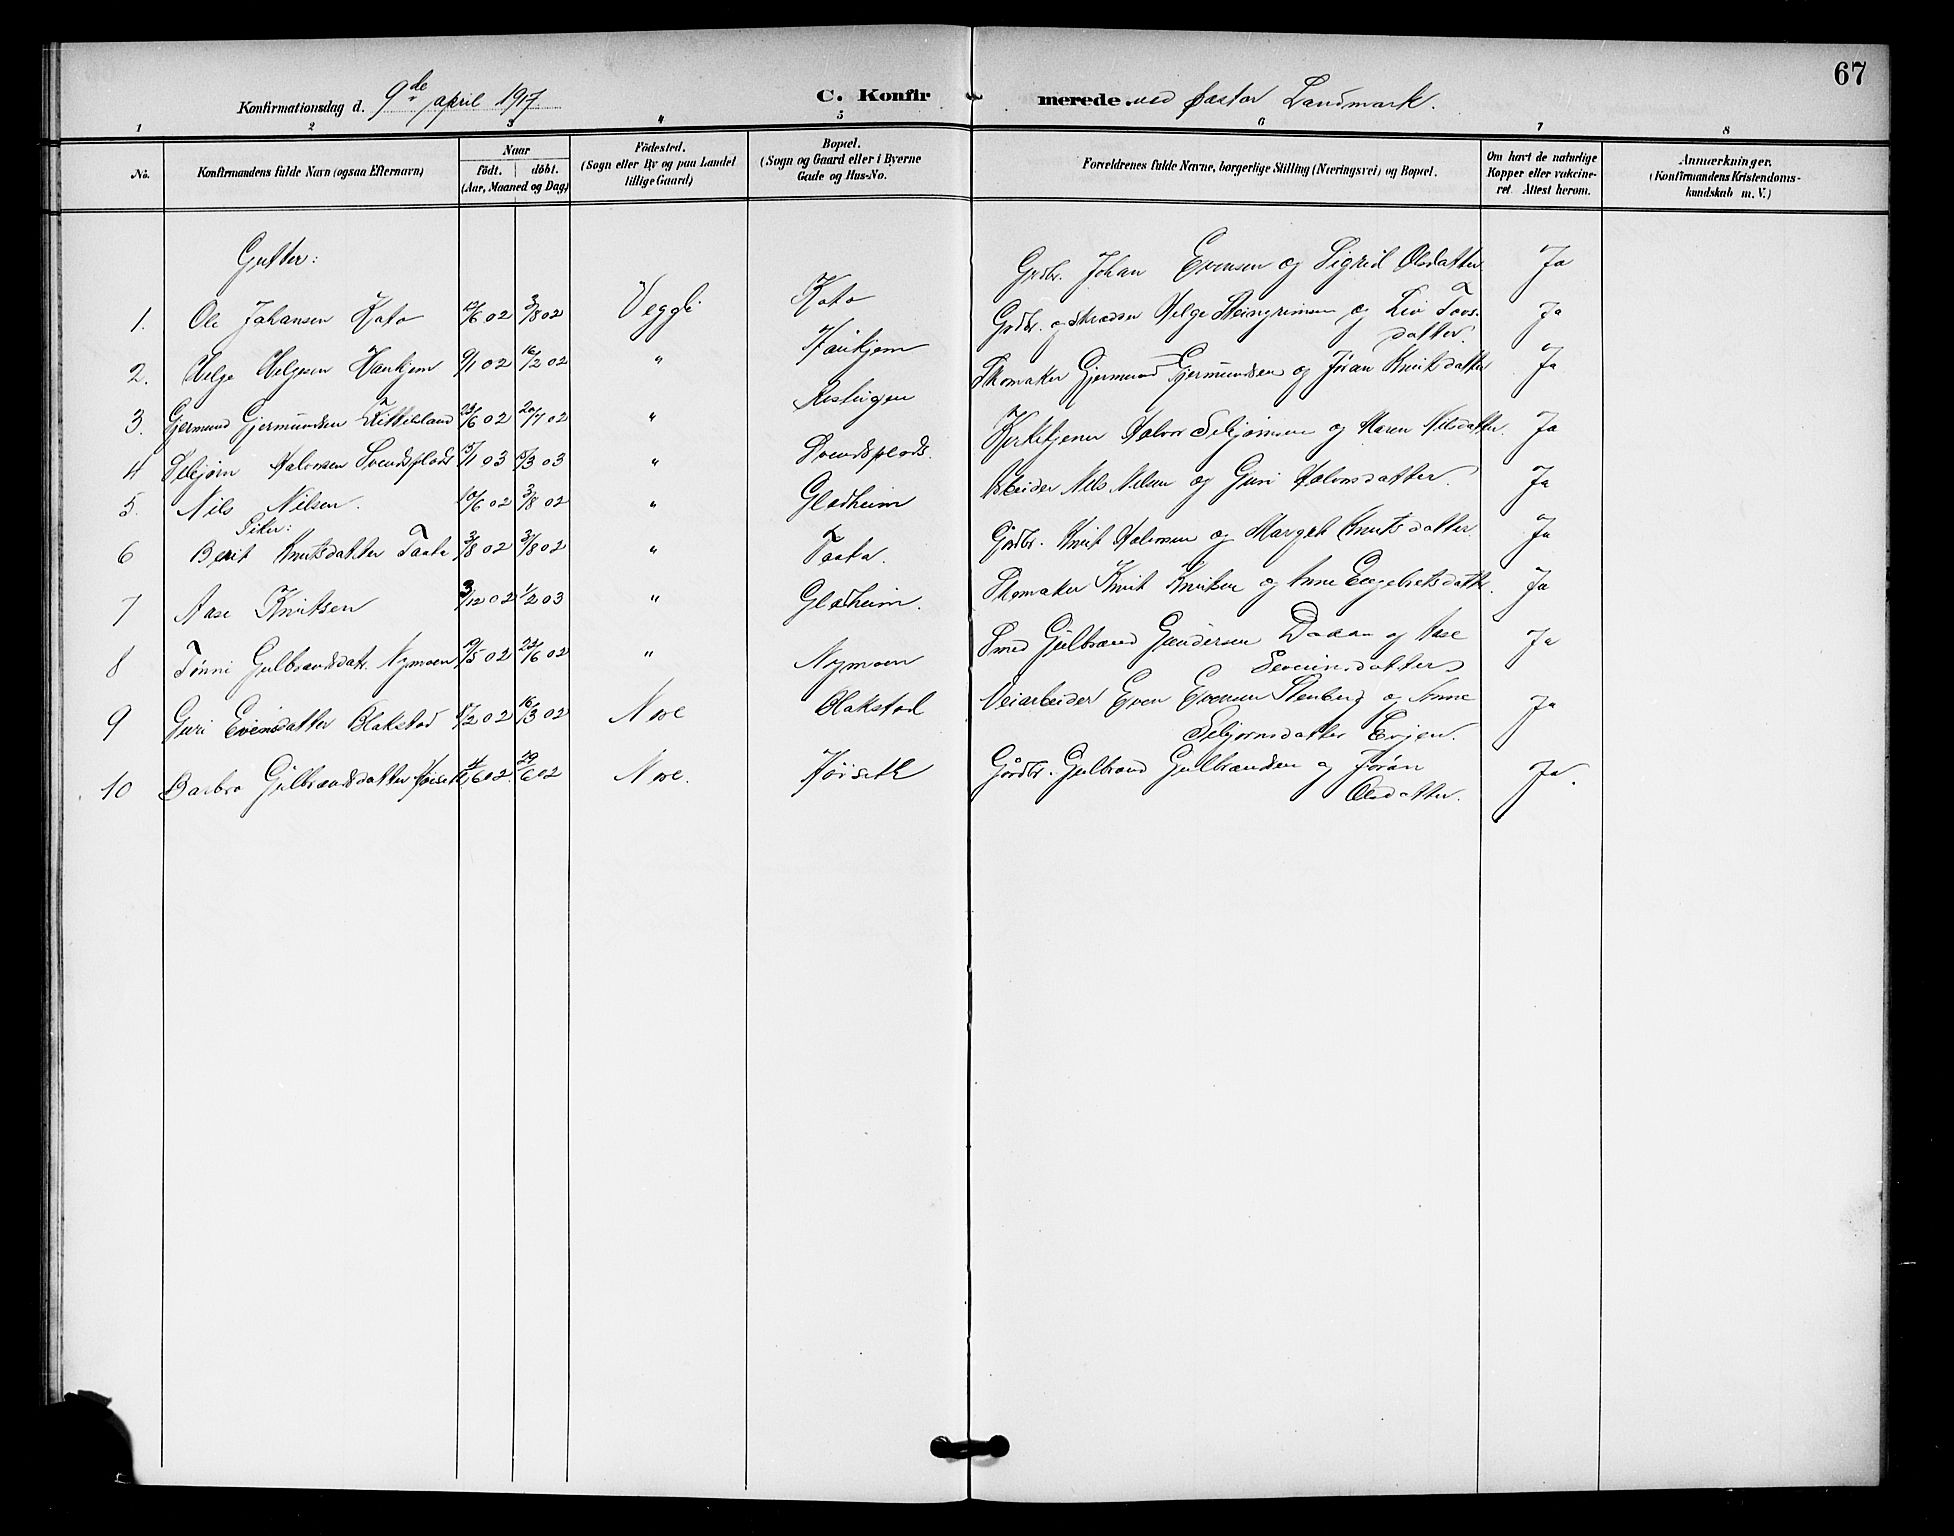 67
Konfirmationsdag d. 9de april 1917 C. Konfirmerede ved Pastor Landmark.
1 2 3 4 5 6 7 8
No. Konfirmandens fulde Navn (ogsaa Efternavn) Naar födt. döbt. (Aar, Maaned og Dag) Födested. (Sogn eller By og paa Landet tillige Gaard) Bopæl. (Sogn og Gaard eller i Byerne Gade og Hus-No. Forældrenes fulde Navne, borgerlige Stilling (Næringsvei) og Bopæl. Om havt de naturlige Kopper eller vakcineret. Attest herom. Anmærkninger. (Konfirmandens Kristendomskundskab m. V.)
Gutter:
1. Ole Johansen Kato 12/6 02 3/8 02 Veggli Kato Grdbr. Johan Evensen og Sigrid Olsdatter Ja
2. Helge Helgesen 9/1 02 16/2 02 " Grdbr. og Helge Steingrimsen og Liv Tovsdatter. Ja
3. Gjermund Gjermundsen Kittilsland 23/6 02 20/7 02 " Skomaker Gjermund Gjermundsen og Jøran Knutsdatter Ja
4 Sebjørn Halvorsen Svendsplads 15/1 03 /3 03 " Svendsplads. Kirketjener Halvor Sebjørnsen og Maren Nilsdatter. Ja
5. Nils Nilsen. 10/6 02 3/8 02 " Gladheim Arbeider Nils Nilsen og Guri Halvorsdatter. Ja
Piker:
6 Berit Knutsdatter Taata 3/8 02 31/8 02 " Taata. Gårdbr. Knut Halvorsen og Margit Knutsdatter Ja
7 Aase Knutsen 3/12 02 1/2 03 " Gladheim. Skomaker Knut Knutsen og Anne Engebretsdatter. Ja
8 Tønni Gulbrandsdatr. Nymoen /5 02 22/6 02 " Nymoen Smed Gulbrand Gundersen og Aase Severinsdatter Ja
9 Guri Evensdatter Blakstad /2 02 16/3 02 Nore Blakstad Veiarbeider Even Evensen Stenberg og Anne Sebjørnsdatter Evjen. Ja
10 Barbro Gulbrandsdatter Høiseth /6 02. 29/6 02 Nore. Høiseth Gårdbr. Gulbrand Gulbrandsen og Jorån Olsdatter. Ja.